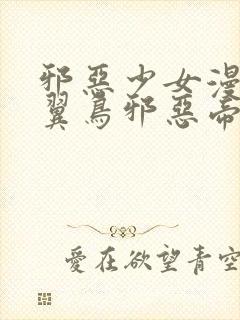 邪惡少女漫
翼鳥邪惡帝
愛在欲望青空